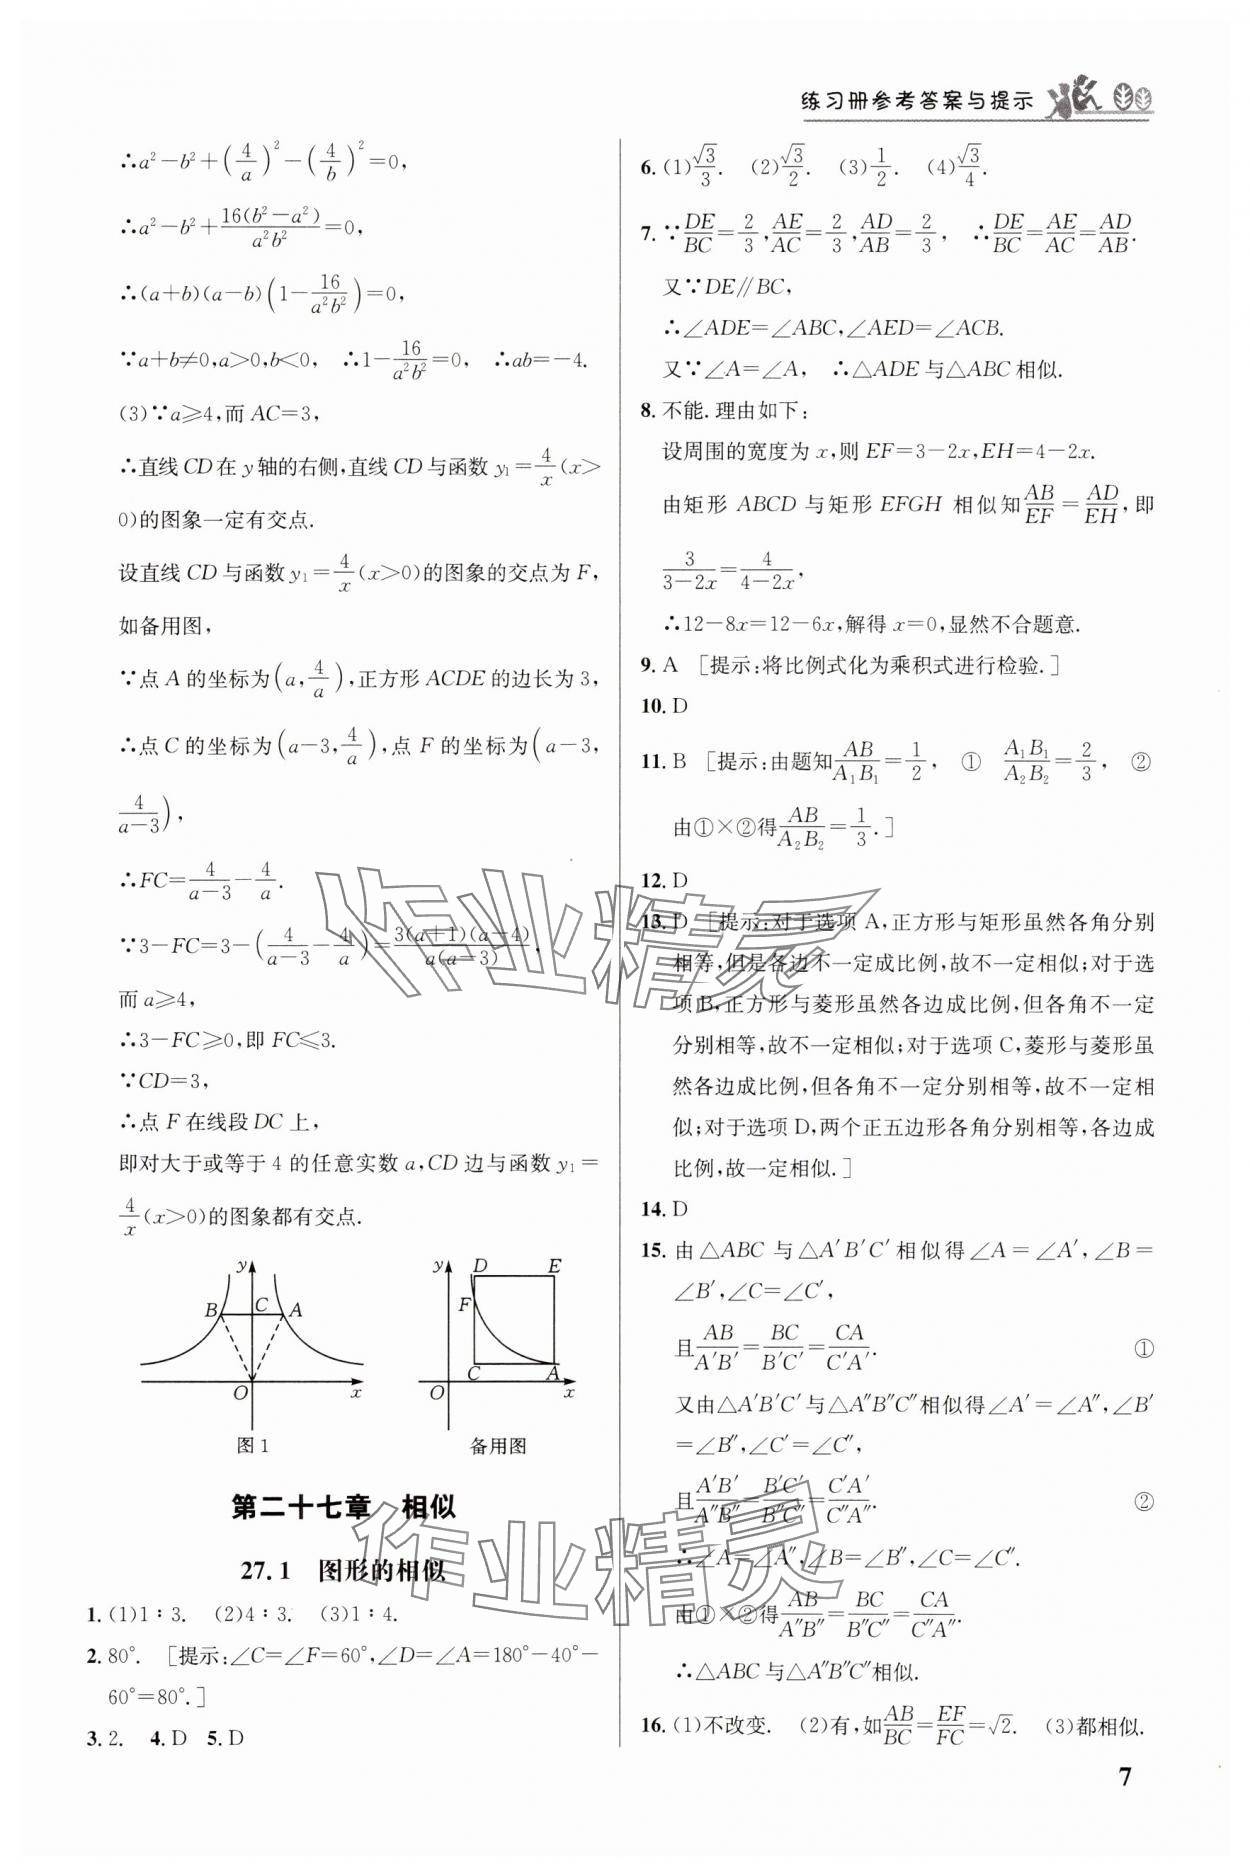 练习册参考答案与提示
∴a²－b²＋(4/a)²－(4/b)²＝0,
∴a²－b²＋16(b²－a²)/a²b²＝0,
∴(a＋b)(a－b)(1－16/a²b²)＝0,
∵a＋b≠0,a＞0,b＜0, ∴1－16/a²b²＝0, ∴ab＝－4.
(3)∵a≥4,而 AC＝3,
∴直线 CD 在 y 轴的右侧,直线 CD 与函数 y₁＝4/x(x＞
0)的图象一定有交点.
设直线 CD 与函数 y₁＝4/x(x＞0)的图象的交点为 F,
如备用图,
∵点 A 的坐标为(a,4/a),正方形 ACDE 的边长为 3,
∴点 C 的坐标为(a－3,4/a),点 F 的坐标为(a－3,
4/(a－3)),
∴FC＝4/(a－3)－4/a.
∵3－FC＝3－(4/(a－3)－4/a)＝3(a＋1)(a－4)/a(a－3),
而 a≥4,
∴3－FC≥0,即 FC≤3.
∵CD＝3,
∴点 F 在线段 DC 上,
即对大于或等于 4 的任意实数 a,CD 边与函数 y₁＝
4/x(x＞0)的图象都有交点.
y
B C A
O x
图 1
y D E
F
C A
O x
备用图
第二十七章 相似
27.1 图形的相似
1. (1)1∶3. (2)4∶3. (3)1∶4.
2. 80°. [提示:∠C＝∠F＝60°,∠D＝∠A＝180°－40°－
60°＝80°.]
3. 2. 4. D 5. D
6. (1)√3/3. (2)√3/2. (3)1/2. (4)√3/4.
7. ∵DE/BC＝2/3,AE/AC＝2/3,AD/AB＝2/3, ∴DE/BC＝AE/AC＝AD/AB.
又∵DE∥BC,
∴∠ADE＝∠ABC,∠AED＝∠ACB.
又∵∠A＝∠A, ∴△ADE 与△ABC 相似.
8. 不能.理由如下:
设周围的宽度为 x,则 EF＝3－2x,EH＝4－2x.
由矩形 ABCD 与矩形 EFGH 相似知AB/EF＝AD/EH,即
3/(3－2x)＝4/(4－2x),
∴12－8x＝12－6x,解得 x＝0,显然不合题意.
9. A [提示:将比例式化为乘积式进行检验.]
10. D
11. B [提示:由题知AB/A₁B₁＝1/2, ① A₁B₁/A₂B₂＝2/3, ②
由①×②得AB/A₂B₂＝1/3.]
12. D
13. D [提示:对于选项 A,正方形与矩形虽然各角分别
相等,但是各边不一定成比例,故不一定相似;对于选
项 B,正方形与菱形虽然各边成比例,但各角不一定
分别相等,故不一定相似;对于选项 C,菱形与菱形虽
然各边成比例,但各角不一定分别相等,故不一定相
似;对于选项 D,两个正五边形各角分别相等,各边成
比例,故一定相似.]
14. D
15. 由△ABC 与△A′B′C′相似得∠A＝∠A′,∠B＝
∠B′,∠C＝∠C′,
且AB/A′B′＝BC/B′C′＝CA/C′A′. ①
又由△A′B′C′与△A″B″C″相似得∠A′＝∠A″,∠B′
＝∠B″,∠C′＝∠C″,
且A′B′/A″B″＝B′C′/B″C″＝C′A′/C″A″. ②
∴∠A＝∠A″,∠B＝∠B″,∠C＝∠C″.
由①×②得AB/A″B″＝BC/B″C″＝CA/C″A″.
∴△ABC 与△A″B″C″相似.
16. (1)不改变. (2)有,如AB/BC＝EF/FC＝√2. (3)都相似.
7
作业精灵
作业精灵